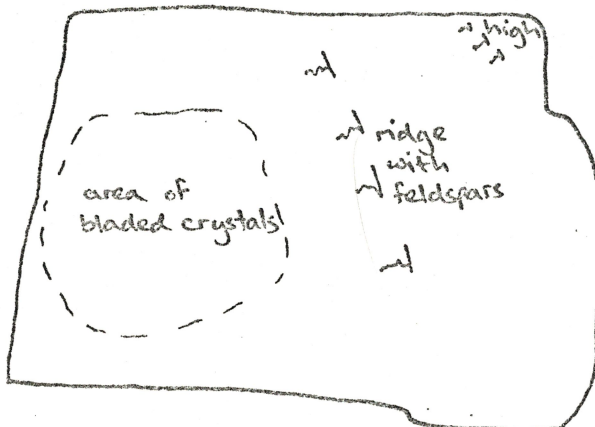 high
ridge
with
feldspars
area of
bladed crystals